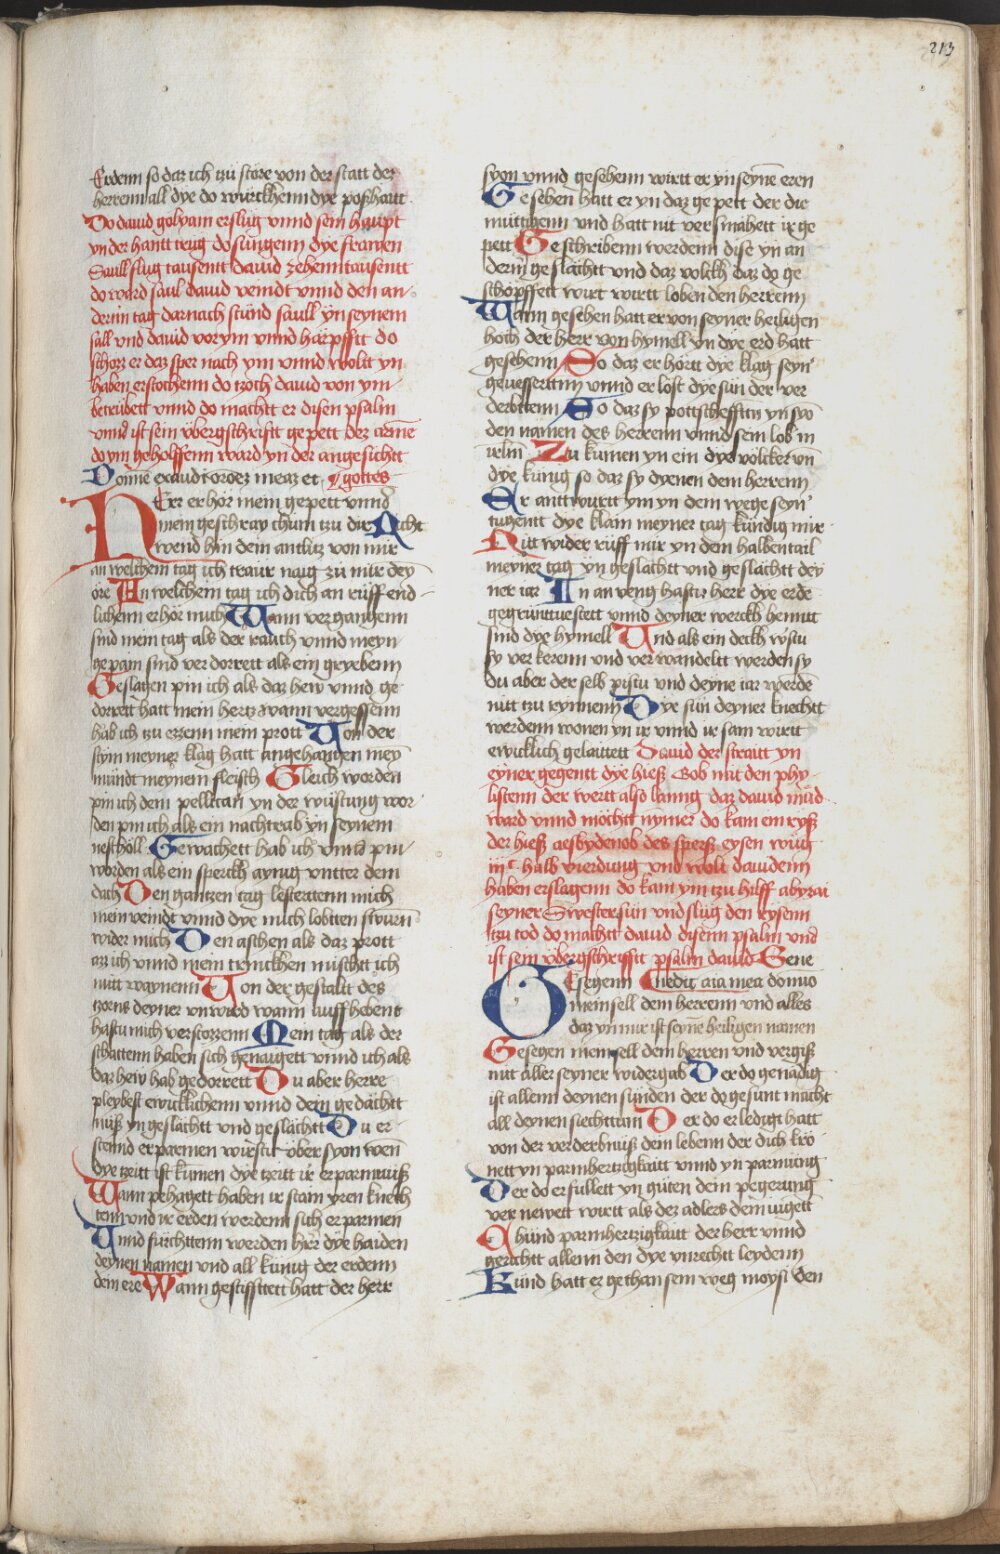 213
Erdenn so daz ich tzu störe von der statt der
herrenn all dye do würckhenn dye poßhait
Do dauid golyam erslug vnnd sein haupt
yn der hantt trug do sungenn dye frawen
Saull slug tausentt dauid zehenn tausentt
do ward saul dauid veindt vnnd den an
dernn tag darnach stund saull yn seynem
sall vnd dauid vor ym vnnd harpfftt do
schosz er daz sper nach ym vnnd wolt yn
haben erstochenn do tzoch dauid von ym
betrübett vnnd do machtt er disen psalm
vnnd ist sein übergschrifft gepett dez armē
do ym geholffenn ward yn der angesichtt
Domine exaudi oroēz meaz et gottes
HErr er hör mein gepett vnnd
mein geschray chum tzu dir Nicht
wend hin dein antlitz von mir
an welchem tag ich traur naig zu mir dey
ore An welchem tag ich dich an rüff end
lichenn erhör mich Wann vergangenn
sind mein tag als der rauch vnnd meyn
gepain sind verdorrett als ein gryebenn
Geslagen pin ich als daz hew vnnd ge
dorrett hatt mein hertz wann vergessenn
hab ich tzu ezzenn mein prott Von der
stym meyner klag hatt angehangen mey
mündt meynem fleisch Gleich worden
pin ich dem pellican yn der wüstung wor
den pin ich als ein nachtrab yn seynem
nestholl Gewachett hab ich vnnd pin
worden als ein sperckh aynig vntter dem
dach Den gantzen tag lestertenn mich
mein veindt vnnd dye mich lobtten swurn
wider mich Den aschen als daz prott
azz ich vnnd mein trinckhen mischtt ich
mitt waynenn Von der gestallt des
zorns deyner vnwird wann auff hebent
hastu mich verstozzenn Mein tag als der
schattenn haben sich genaigett vnnd ich als
daz hew hab gedorrett Du aber herre
pleybest ewicklichenn vnnd dein gedächtt
nuß yn geslächtt vnd geslächtt Du er
steend erparmen wirstu über syon wen̄
dye tzeitt ist kumen dye tzeitt ir erparmnuß
Wann pehagett haben ir stain yren knech
tenn vnd ir erden werdent sich erparmen
Vnnd fürchttenn werden herr dye haiden
deynen namen vnd all künig der erdenn
dein ere Wann gestifftett hatt der herr
syon vnnd gesehenn wirtt er yn seyne eren
Gesehen hatt er yn daz gepett der die
muttigenn vnd hatt nit versmahett ir ge
pett Geschribenn werdenn dise yn an
derm geslächtt vnd daz volckh daz do ge
schopffett wirt wirtt loben den herrenn
Wann gesehen hatt er von seyner heiligen
hoch der herr von hymell yn dye erd hatt
gesehenn So daz er hortt dye klag seyn
gevessertnn vnnd er lost dye sün der ver
derbttenn So daz sy pottscheffttn yn syō
den namen des herrenn vnnd sein lob in
irlm Zu kumen yn ein dye völcker vn̄
dye künig so daz sy dyenen dem herrenn
Er anttwurtt ym yn dem wege seyn
tugentt dye klain meyner tag kündig mir
Nitt wider rüff mir yn dem halbentail
meyner tag yn geslächtt vnd geslächtt dey
ner iar In anveng hastu herr dye erde
gegruntuestett vnnd deyner werckh henntt
sind dye hymell Vnd als ein deckh wstu
sy verkerenn vnd verwandeltt werden sy
du aber der selb pistu vnd deyne iar werdē
nitt tzu rynnenn Dye sün deyner knechtt
werdenn wonen yn ir vnnd ir sam wirtt
ewicklich gelaittett Dauid der straitt yn
eyner gegentt dye hieß Gob mit den phy
listenn der wertt also lanng daz dauid müd
ward vnnd mochtt nymer do kam ein ryß
der hieß aesbydenob des sperß eysen wug
iijc halb vierdung vnd wolt dauidenn
haben erslagenn do kam ym tzu hilff abyzai
seyner Swestersün vnd slug den rysenn
tzu tod do machtt dauid disenn psalm vnd
ist sein übergschrifft psalm dauid Bene
GEsegenn Cnedic aīa mea domino
mein sell dem herrenn vnd alles
daz yn mir ist seyne heiligen namen
Gesegen mein sell dem herren vnd vergiß
nit aller seyner widergab Der do genädig
ist allenn deynen sünden der do gesunt macht
all deynen siechttum Der do erledigt hatt
von der verderbnuß dem lebenn der dich krö
nett yn parmhertzigkaitt vnnd yn parmung
Der do erfullett yn güten dein pegerung
vernewett wirtt als dez adlers dein iugett
Chünd parmhertzigkaitt der herr vnnd
gerichtt allenn den dye vnrechtt leydenn
Kund hatt er gethan sein weg moysi den